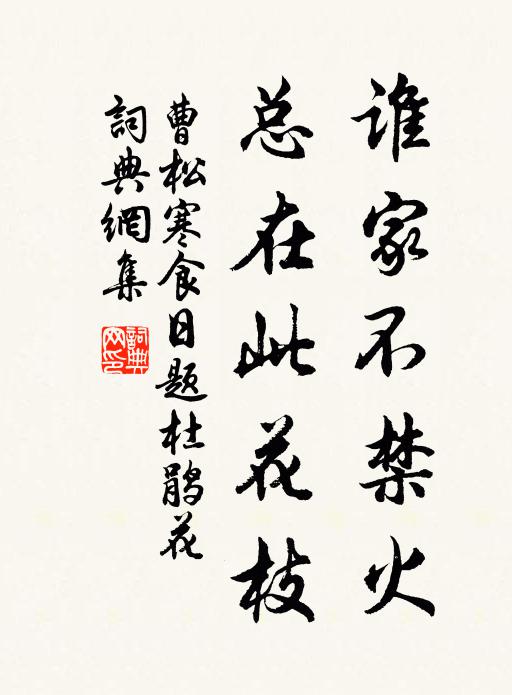 谁家不禁火
总在此花枝
曹松寒食日题杜鹃花
詞典網集
詞典
网印